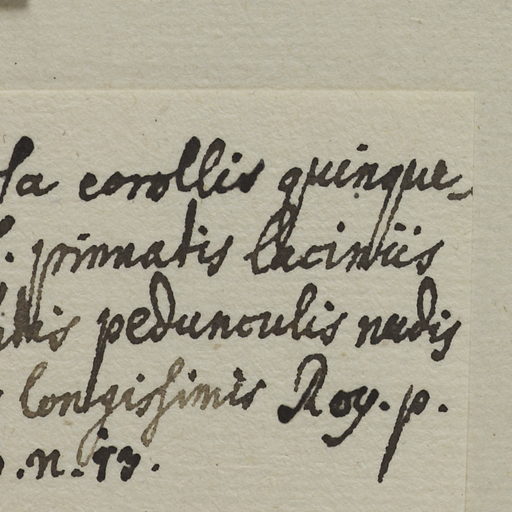 corollis quinque-
pinnatis laciniis
pedunculis nudis
longissimis Roy. p.
n. 13.